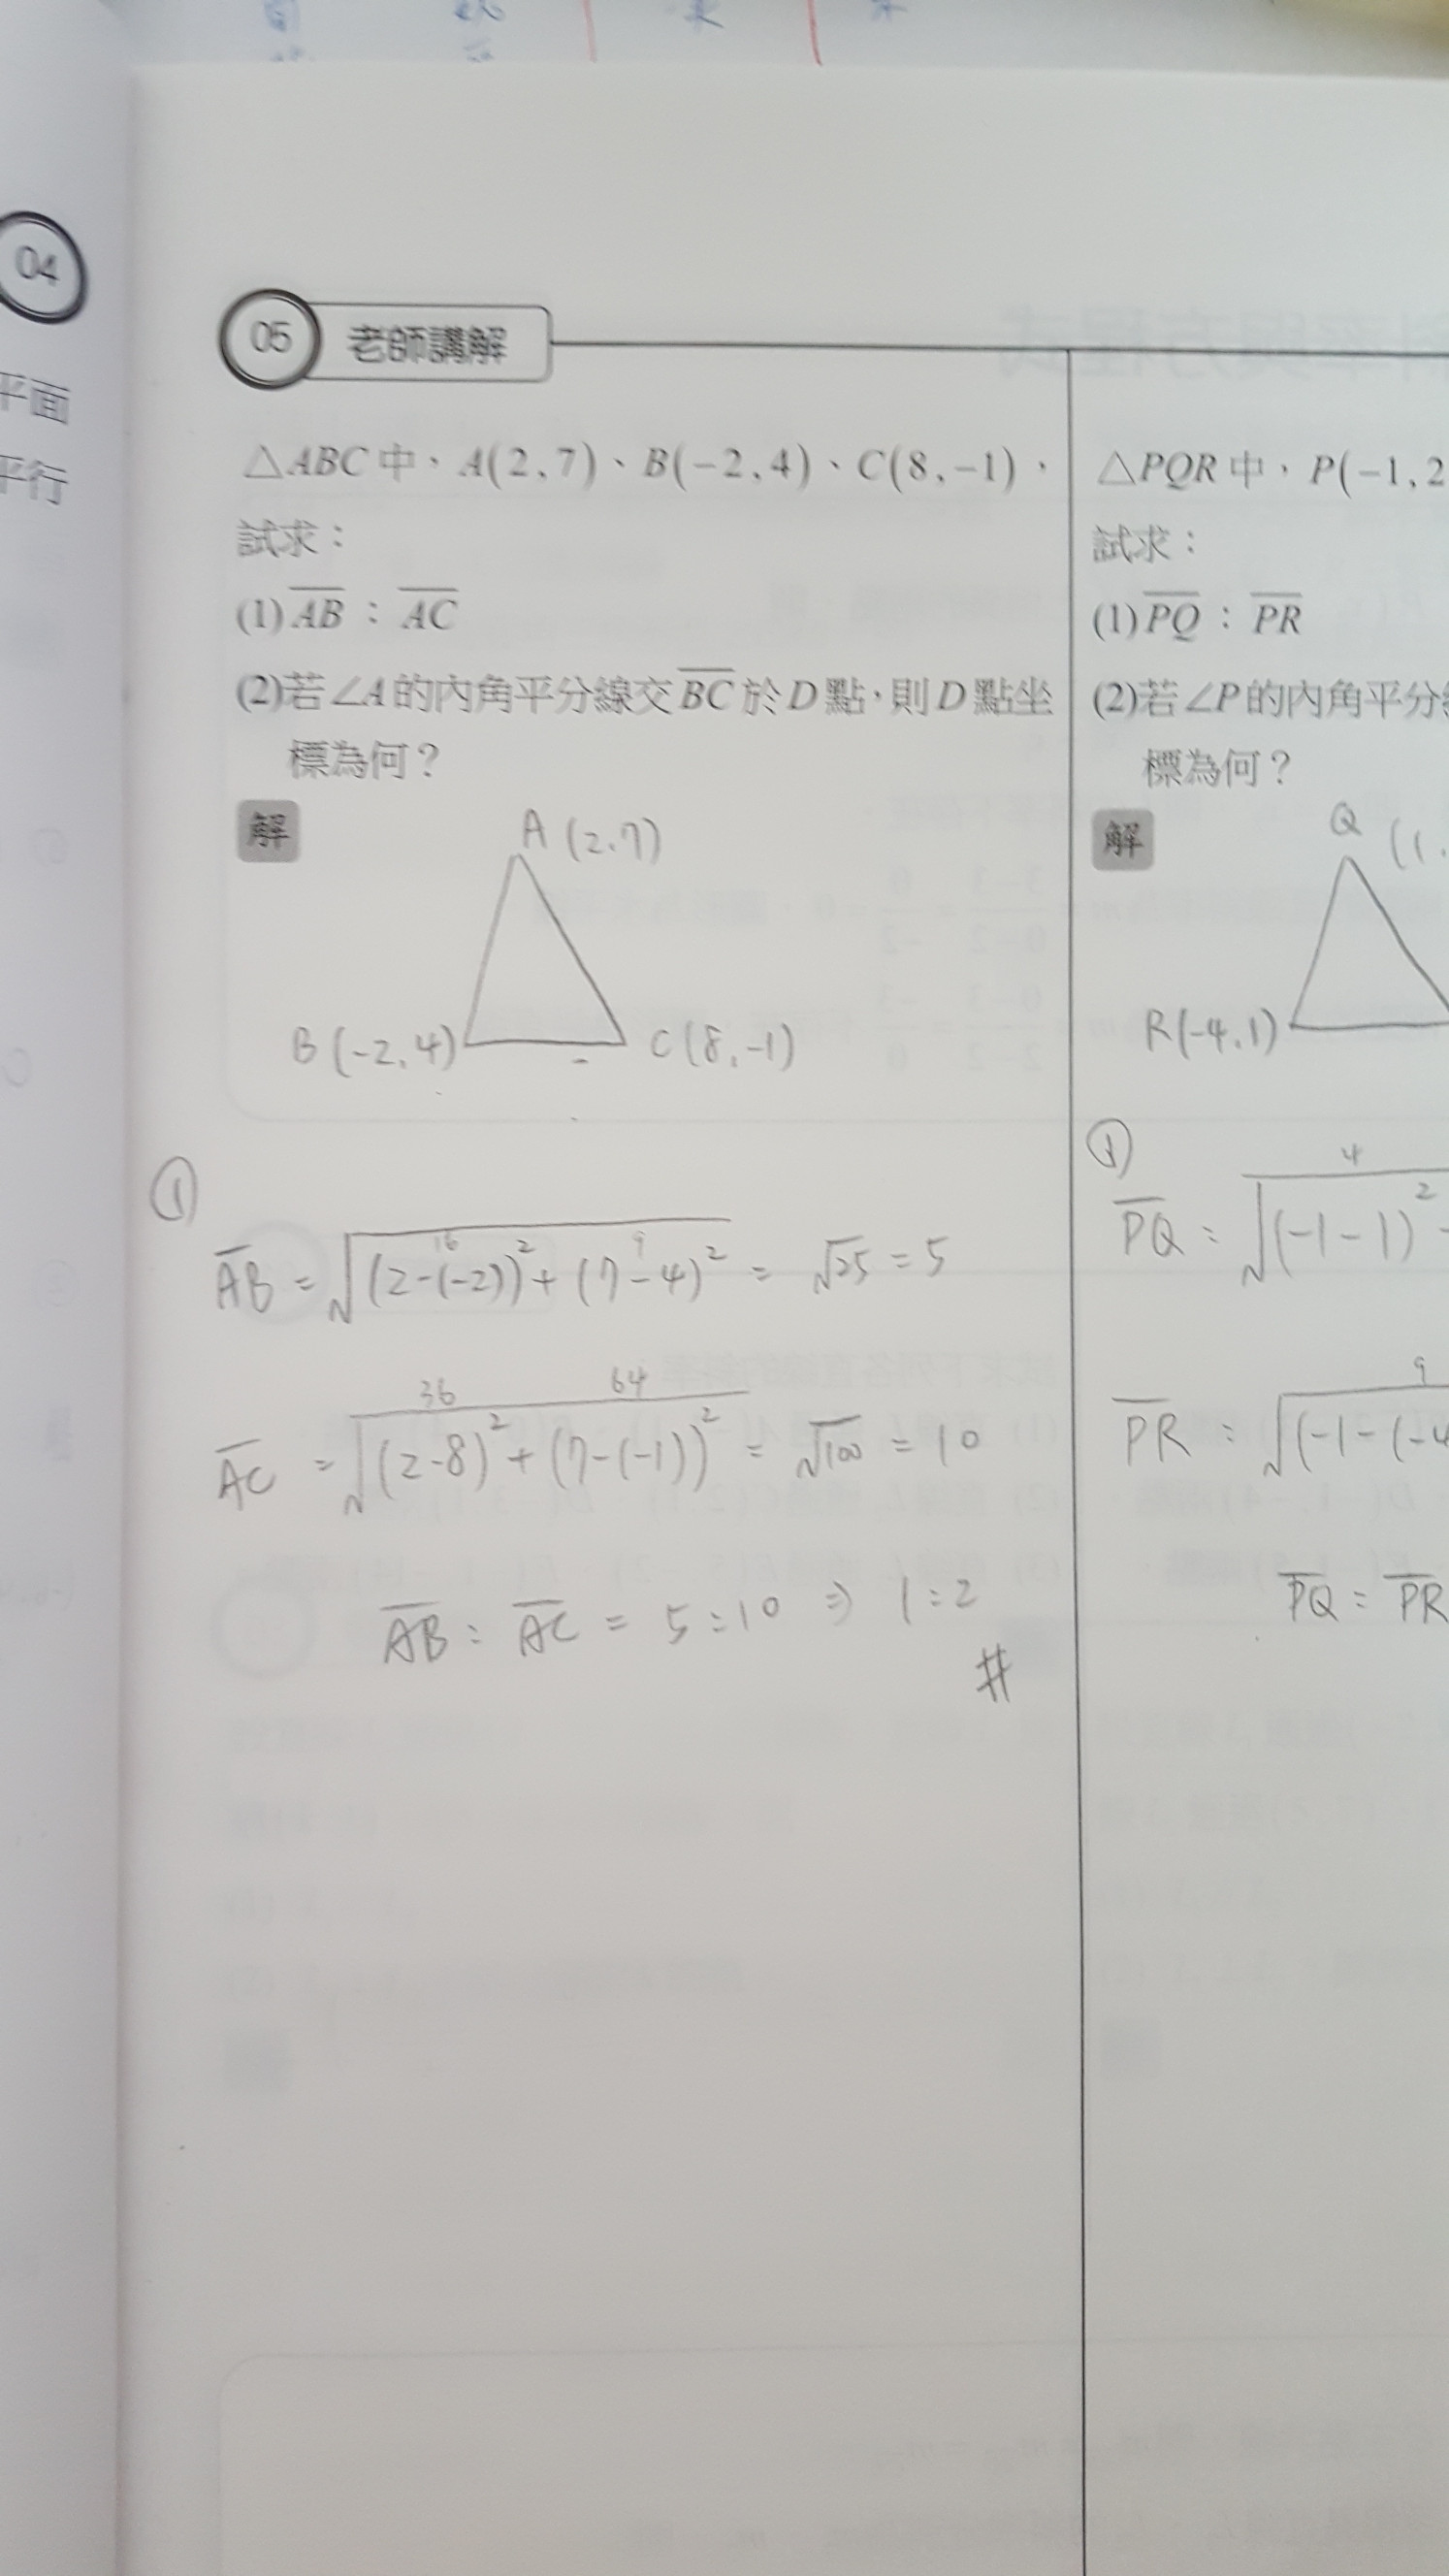 04
平面
平行
05 老師講解
△ABC 中，A(2,7)、B(−2,4)、C(8,−1)，
試求：
(1) \overline{AB}：\overline{AC}
(2)若∠A的內角平分線交\overline{BC}於D點，則D點坐
標為何？
解
A (2,7)
B (-2,4)
C (8,-1)
①
\overline{AB} = √((2-(-2))²+(7-4)²) = √25 = 5
16 9
36 64
\overline{AC} = √((2-8)²+(7-(-1))²) = √100 = 10
\overline{AB} : \overline{AC} = 5:10 ⇒ 1:2
#
△PQR 中，P(−1,2
試求：
(1) \overline{PQ}：\overline{PR}
(2)若∠P的內角平分
標為何？
解
Q (1,
R(-4,1)
①
4
\overline{PQ} = √(-1-1)²
9
\overline{PR} = √(-1-(-4
\overline{PQ} : \overline{PR}